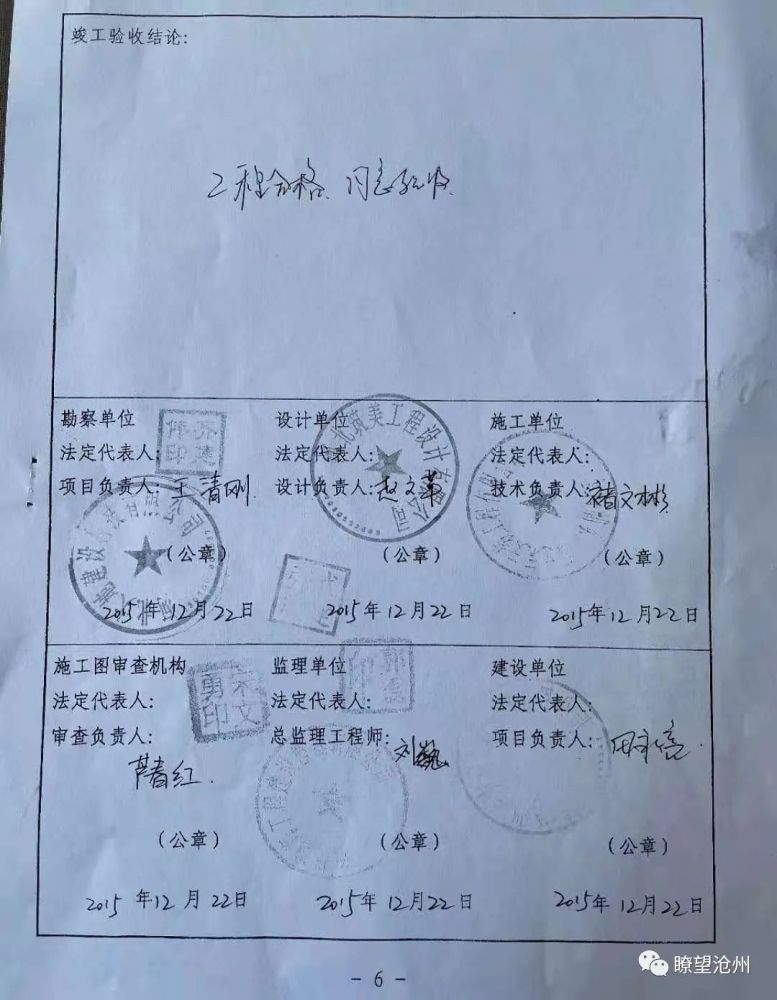 竣工验收结论:
工程合格、同意验收
勘察单位
法定代表人:
项目负责人: 王清刚
(公章)
2015年12月22日
设计单位
法定代表人:
设计负责人: 赵文革
筑美工程设计有限公司
(公章)
2015年12月22日
施工单位
法定代表人:
技术负责人: 褚文彬
(公章)
2015年12月22日
施工图审查机构
法定代表人:
宋文勇印
审查负责人:
(公章)
2015年12月22日
监理单位
法定代表人:
总监理工程师: 刘
(公章)
2015年12月22日
建设单位
法定代表人:
项目负责人:
(公章)
2015年12月22日
- 6 -
瞭望沧州